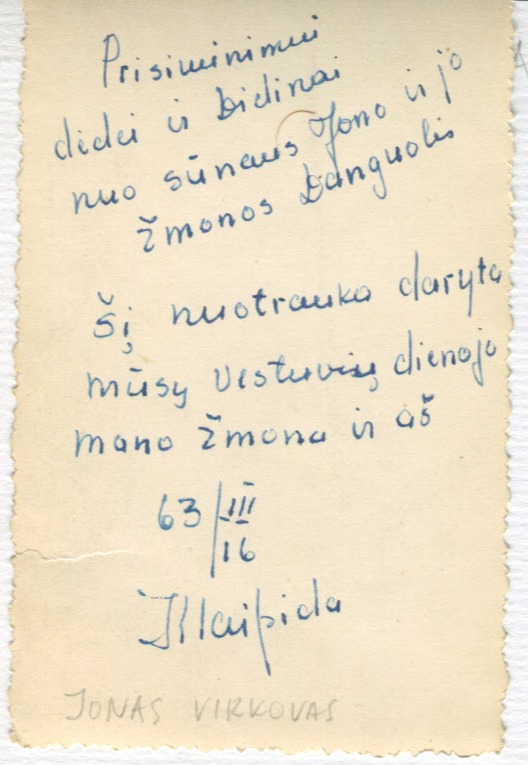 Prisiminimui
dėdei ir Dėdinai
nuo sūnaus Jono ir jo
žmonos Danguolės
Šį nuotrauka daryta
mūsų vestuvių dienoje
mano žmona ir aš
63/III
16
Klaipėda
JONAS VIRKOVAS